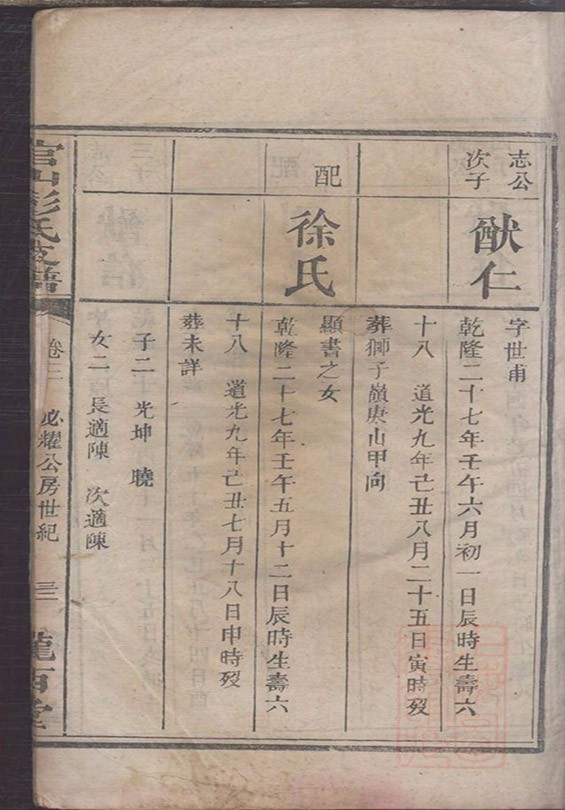 志公
次子
猷仁
字世甫
乾隆二十七年壬午六月初一日辰時生壽六
十八 道光九年己丑八月二十五日寅時歿
葬獅子嶺庚山甲向
配
徐氏
顯書之女
乾隆二十七年壬午五月十二日辰時生壽六
十八 道光九年己丑七月十八日申時歿
葬未詳
子二 光坤 曉
女二 長適陳 次適陳
官山彭氏支譜 卷三 必耀公房世紀 三 隴西堂